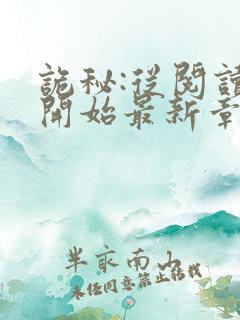 詭秘:從閱讀
開始最新章
半夜南山
未經同意禁止轉載